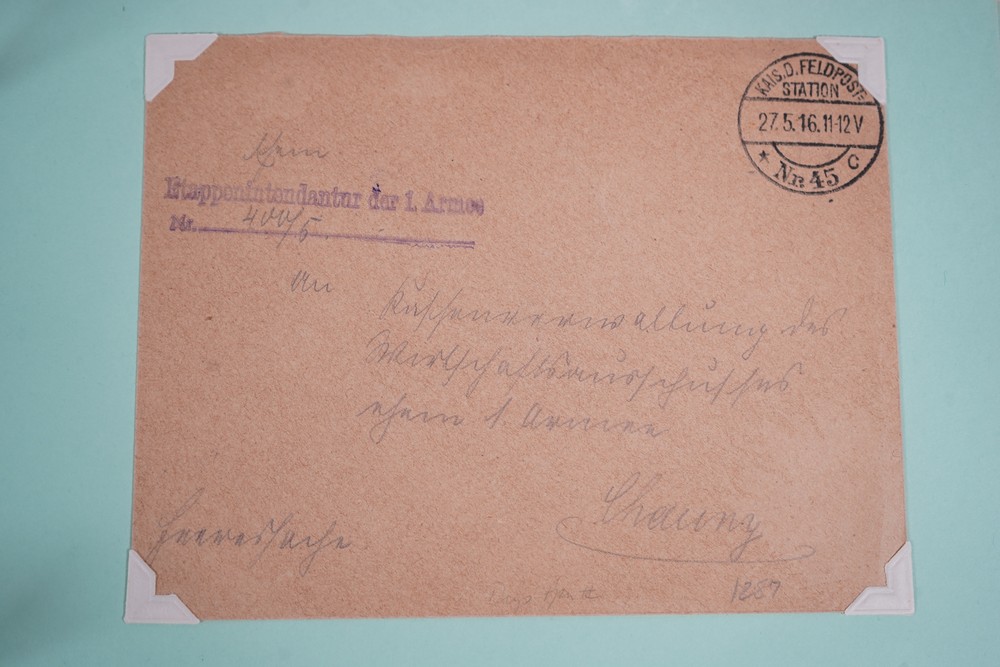 KAIS. D. FELDPOST-
STATION
27.5.16.11-12V
* Nr. 45 c
Ehem.
Etappenintendantur der 1. Armee
Nr. 400/5.
An
Kassenverwaltung des
Wirtschaftsausschusses
ehem 1. Armee
Chauny
Heeressache
1287